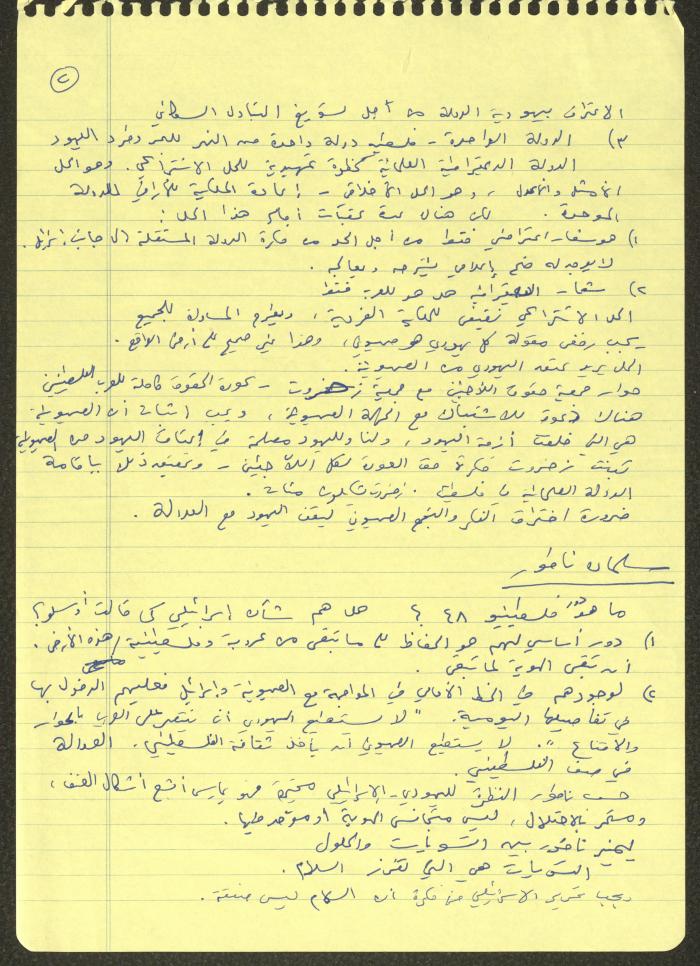 ٢
الاعتراف بيهودية الدولة من أجل تسويغ التبادل السكاني
٣) الدولة الواحدة - فلسطين دولة واحدة من النهر للبحر وطرد اليهود
الدولة الديمقراطية العلمانية كخطوة تمهيدية للحل الاشتراكي. وهو الحل
الأمثل والأعدل، وهو الحل الأخلاقي - إعادة الملكية للأراضي للدولة
الموحدة. لكن هناك عدة عقبات أمام هذا الحل:
١) هو شعار اعتراضي فقط من أجل الحد من فكرة الدولة المستقلة إلى جانب إسرائيل.
لا يوجد له ضخ إعلامي يشرحه ويعالجه.
٢) شعار الديمقراطية هل هو للعرب فقط
الحل الاشتراكي نقيض للملكية الفردية، ويطرح المساواة للجميع
يجب رفض مقولة كل يهودي هو صهيوني، وهذا غير صحيح على أرض الواقع.
الحل يريد عتق اليهودي من الصهيونية.
حوار جمعية حقوق اللاجئين مع جمعية زخروت - بعودة الحقوق كاملة للعرب الفلسطينيين
هناك دعوة للاشتباك مع الحركة الصهيونية، ويجب إثبات أن الصهيونية
هي التي خلقت أزمة اليهود، ولنا ولليهود مصلحة في إعتاق اليهود من الصهيونية
تبنت زخروت فكرة حق العودة لكل اللاجئين - وتحقيق ذلك بإقامة
الدولة العلمانية في فلسطين. زخروت
ضرورة اختراق الفكر والمجتمع الصهيوني ليقف اليهود مع العدالة.
سلمان ناطور
ما هو دور فلسطينيو ٤٨؟ هل هم شأن إسرائيلي كما قالت أوسلو؟
١) دور أساسي لهم هو الحفاظ على ما تبقى من عروبة وفلسطينية هذه الأرض.
أن تبقى الهوية لما تبقى.
٢) لوجودهم في الخط الأمامي في المواجهة مع الصهيونية وإسرائيل فعليهم الدخول بها
في تفاصيلها اليومية. "لا يستطيع اليهودي أن ينتصر على العربي بالحوار
والاقناع". لا يستطيع الصهيوني أن يأخذ ثقافة الفلسطيني. العدالة
في صف الفلسطيني.
حسب ناطور النظرة لليهودي - الإسرائيلي محيرة فهو يمارس أبشع أشكال العنف،
ومستمر بالاحتلال، ليس متجانس الهوية أو موقوعد عليها.
يميز ناطور بين التسويات والحلول
التسويات هي التي تفرز السلام.
ويجب تحرير الإسرائيلي من فكرة أن السلام ليس صفقة.